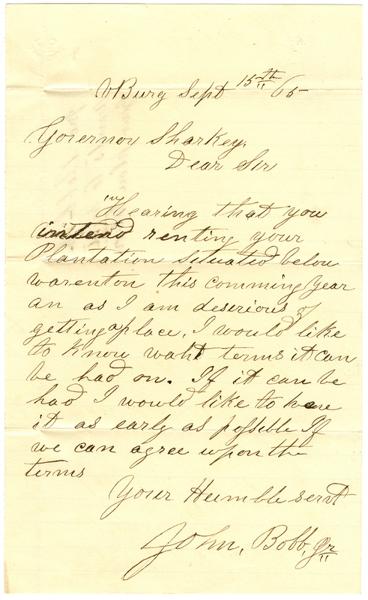 VBurg Sept 15th /65
Governor Sharkey,
Dear Sir
"Hearing that you
intend renting your
Plantation Situated below
warenton this comming year
an as I am deserious of
getting a place, I would like
to know waht terms it can
be had on. If it can be
had I would like to have
it as early as possible If
we can agree upon the
terms
Your Humble servt
John, Bobb, Jr